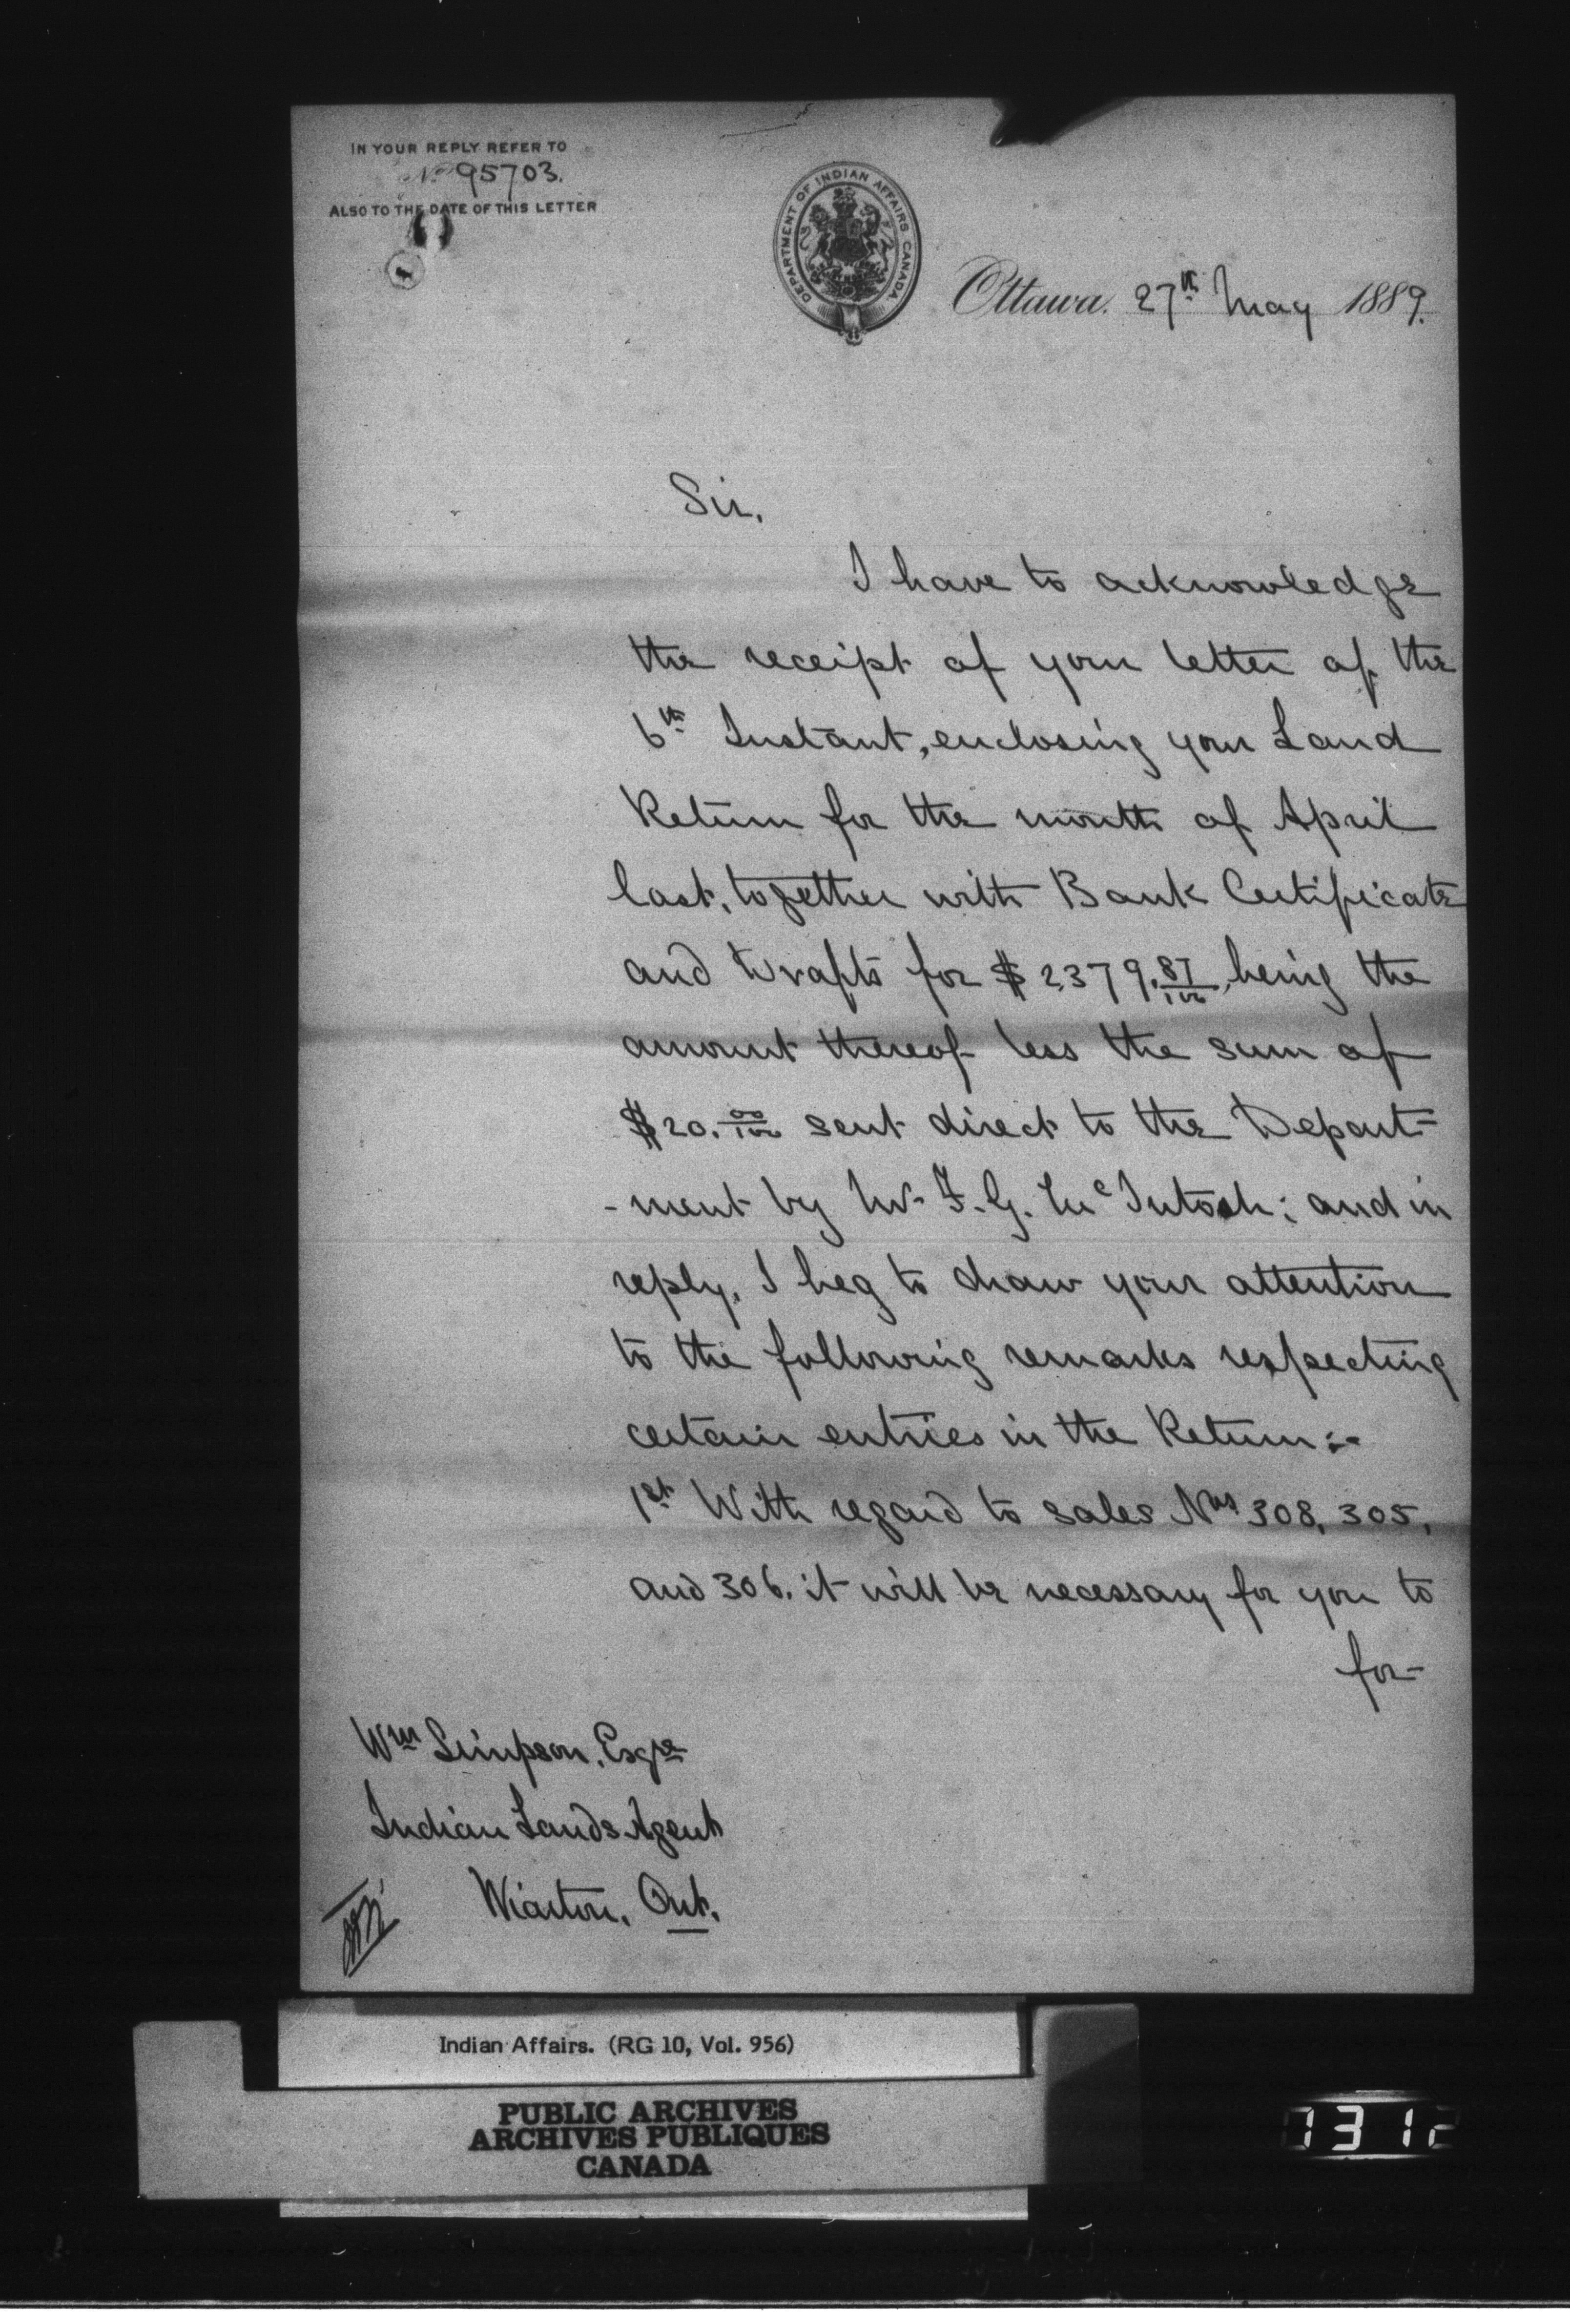 IN YOUR REPLY REFER TO
No 95703.
ALSO TO THE DATE OF THIS LETTER
DEPARTMENT OF INDIAN AFFAIRS CANADA
Ottawa. 27th May 1889.
Sir,
I have to acknowledge
the receipt of your letter of the
6th Instant, enclosing your Land
Return for the month of April
last, together with Bank Certificate
and Drafts for $2379.87/100, being the
amount thereof less the sum of
$20.00/100 sent direct to the Depart-
-ment by Mr F. G. McIntosh; and in
reply, I beg to draw your attention
to the following remarks respecting
certain entries in the Return:-
1st With regard to sales Nos 308, 305,
and 306. it will be necessary for you to
for-
Wm Simpson, Esqre
Indian Lands Agent
Wiarton, Ont.
Indian Affairs. (RG 10, Vol. 956)
PUBLIC ARCHIVES
ARCHIVES PUBLIQUES
CANADA
1312